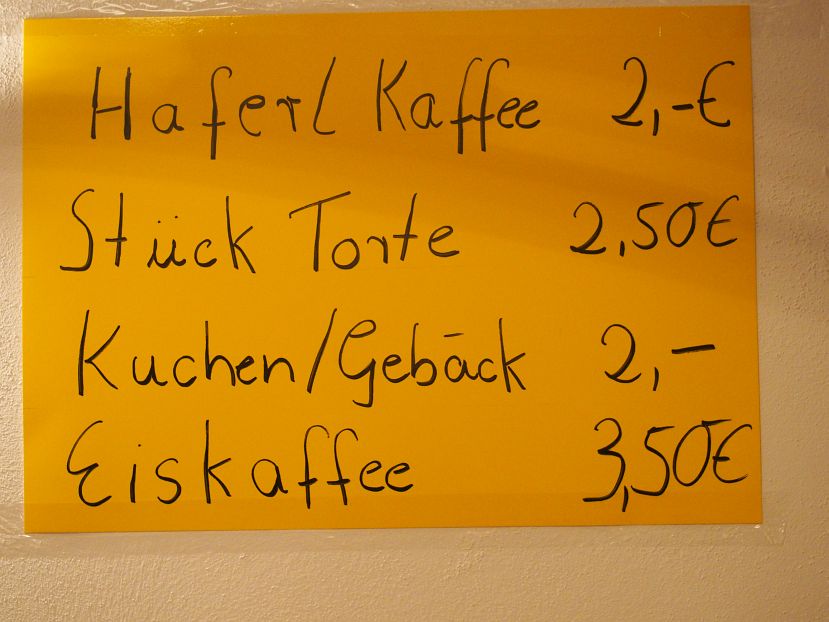 Haferl Kaffee 2,-€
Stück Torte 2,50€
Kuchen/Gebäck 2,-
Eiskaffee 3,50€